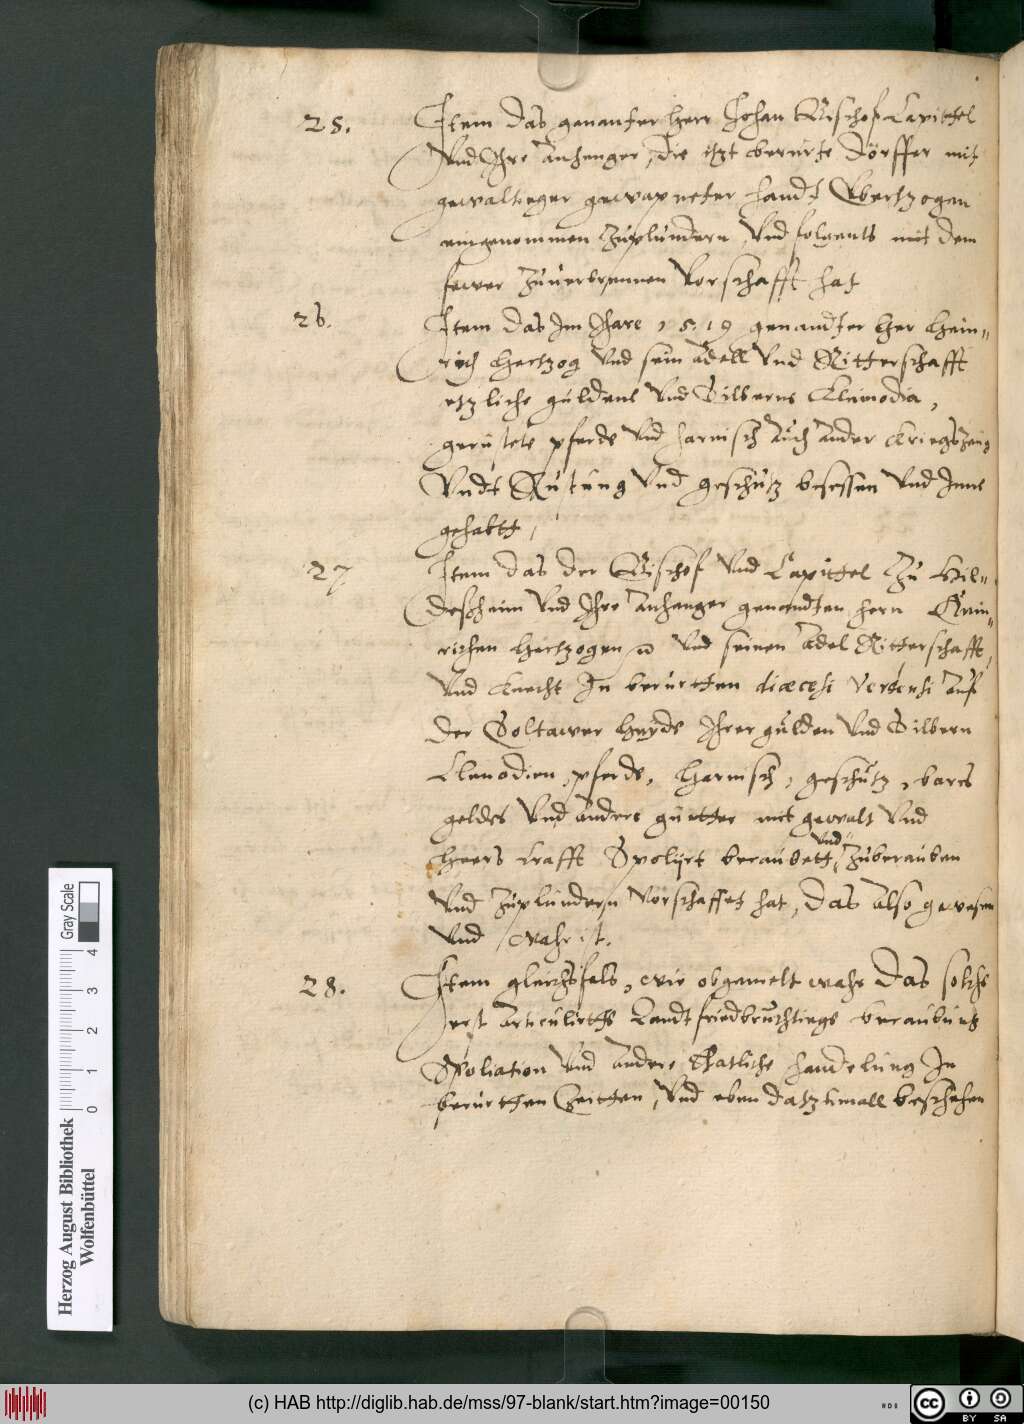 25. Item das genanter herr Johan Bischof Capittel
Vnd Ihre Anhenger, die itzt berürte Dörffer mit
gewaltiger gewapneter handt Vbertzogen
eingenommen Züplündern, Vnd folgents mit dem
fewer Zűuerbrennen Vorschafft hat
26. Item das Im Ihare 1519 genandter Her Hein„
rich Hertzog Vnd sein Adell Vnd Ritterschafft
etzliche güldene Vnd Silberne Kleinodia,
gerüstete pferde Vnd harnisch Auch Ander Kriegszeüg
Vndt Rüstüng Vnd geschütz besessen Vnd Inne
gehabtt,
27 Item das der Bischof Vnd Capittel Zü Hil„
desheim Vnd Ihre Anhenger genandten hern Hein„
richen Hertzogen Vnd seinen Adel Ritterschafft,
Vnd Knecht In berürtten diœcesi Verdensi Auf
der Soltawer Heyde Ihrer gülden Vnd Silbern
Clenodien, pferde, Harnisch, geschütz, bares
geldes Vnd Anders güetter mit gewalt Vnd
Heers krafft Spolijrt beraübett, Vnd Züberauben
Vnd Züplündern Vorschaffet hat, Das Also gewesen
Vnd wahr ist.
28. Item gleichsfals, wie obgemelt wahr Das solche
erst Articulirthe Landtfriedbrüchtinge beraübüng
Spoliation Vnd Andere Thatliche handelüng In
berürtten Zeitten, Vnd eben datzümall beschehen
Herzog August Bibliothek
Wolfenbüttel
0 1 2 3 4
Gray Scale
(c) HAB http://diglib.hab.de/mss/97-blank/start.htm?image=00150
cc BY SA